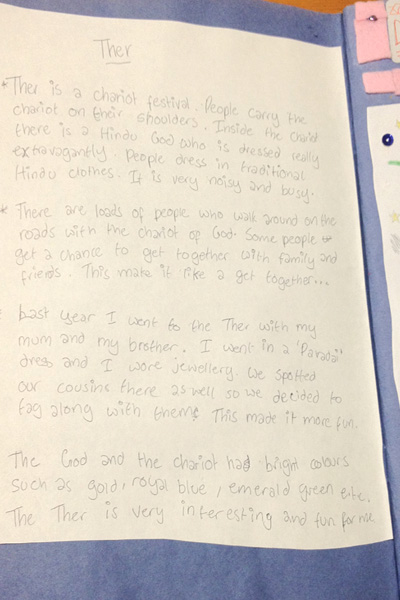 Ther
* Ther is a chariot festival. People carry the
chariot on their shoulders. Inside the Chariot
there is a Hindu God who is dressed really
extravagantly. People dress in traditional
Hindu clothes. It is very noisy and busy.
* There are loads of people who walk around on the
roads with the chariot of God. Some people
get a chance to get together with family and
friends. This make it like a get together...
Last year I went to the Ther with my
mum and my brother. I went in a 'Pavadai'
dress and I wore jewellery. We spotted
our cousins there as well so we decided to
tag along with them. This made it more fun.
The God and the chariot had bright colours
such as gold, royal blue, emerald green etc.
The Ther is very interesting and fun for me.